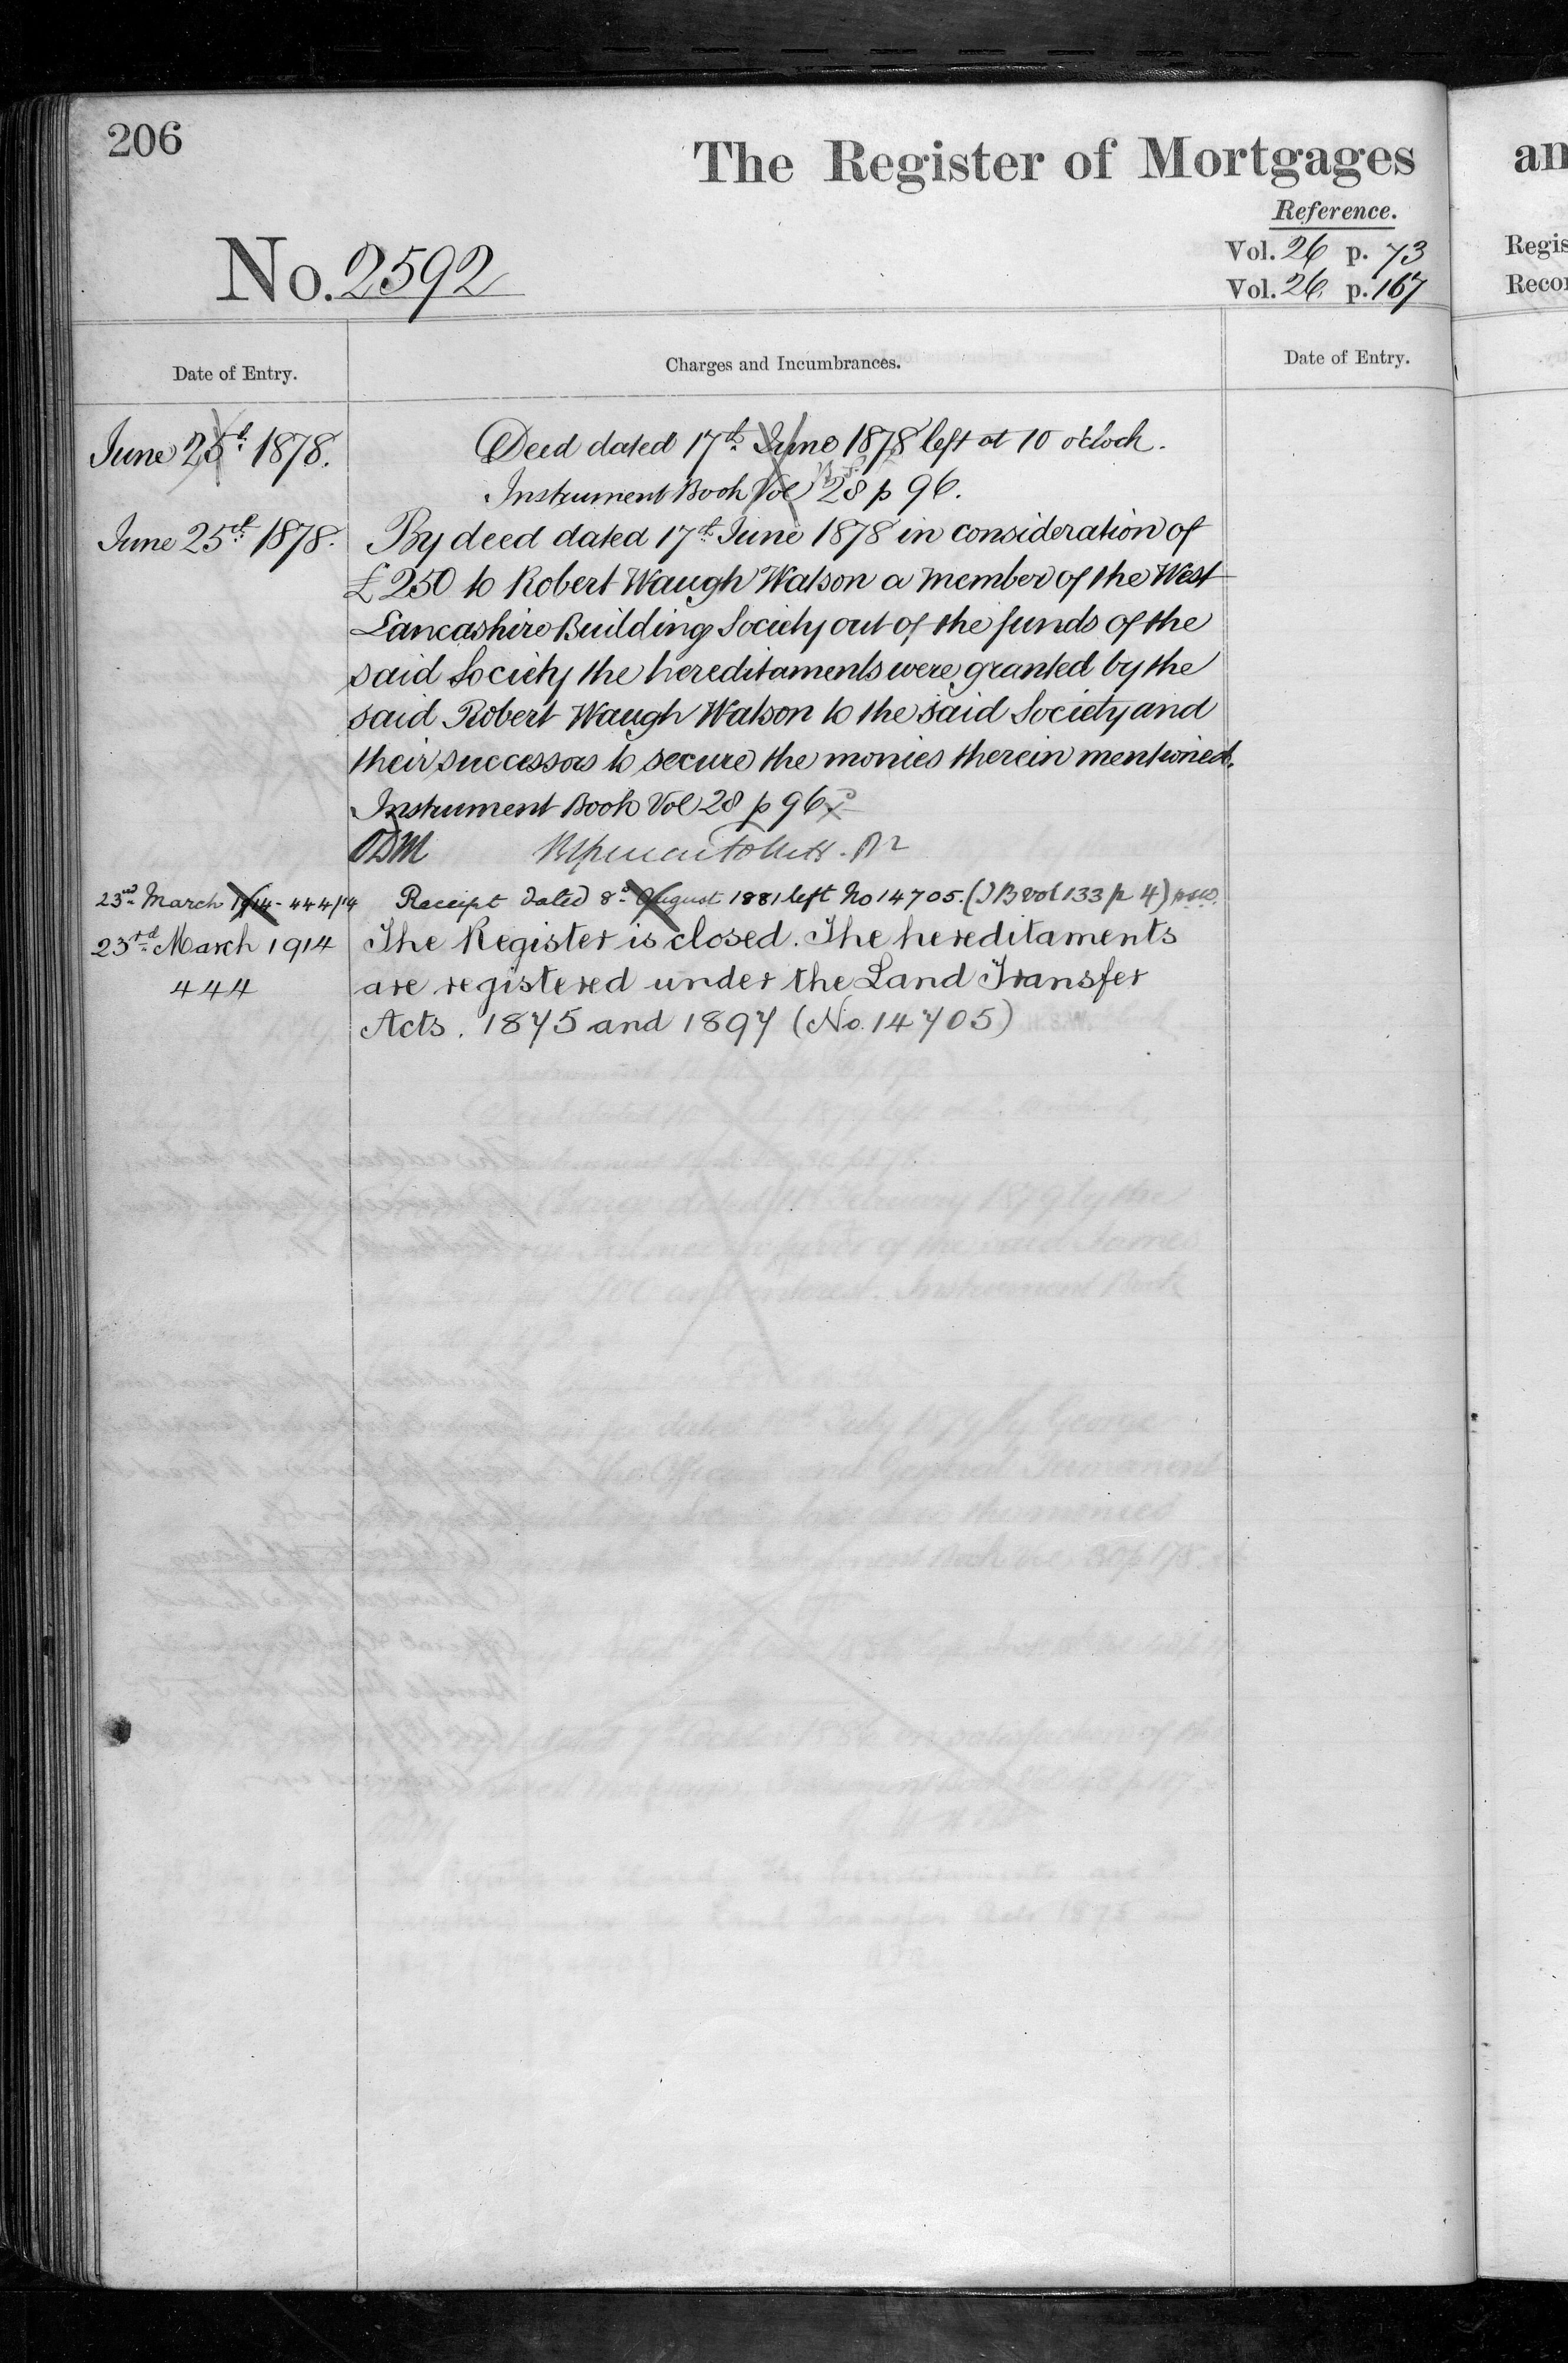 206
The Register of Mortgages
Reference.
No. 2592
Vol. 26 p. 73
Vol. 26 p. 167
Date of Entry.
Charges and Incumbrances.
Date of Entry.
June 25th 1878. Deed dated 17th June 1878 left at 10 o'clock.
Instrument Book Vol 28 p 96.
June 25th 1878. By deed dated 17th June 1878 in consideration of
£250 to Robert Waugh Watson a member of the West
Lancashire Building Society out of the funds of the
said Society the hereditaments were granted by the
said Robert Waugh Watson to the said Society and
their successors to secure the monies therein mentioned.
Instrument Book Vol 28 p 96
23rd March 1914 - 444/14 Receipt dated 8th August 1881 left No 14705. (IB vol 133 p 4)
23rd March 1914 The Register is closed. The hereditaments
444 are registered under the Land Transfer
Acts. 1875 and 1897 (No. 14705)
an
Regis
Recor